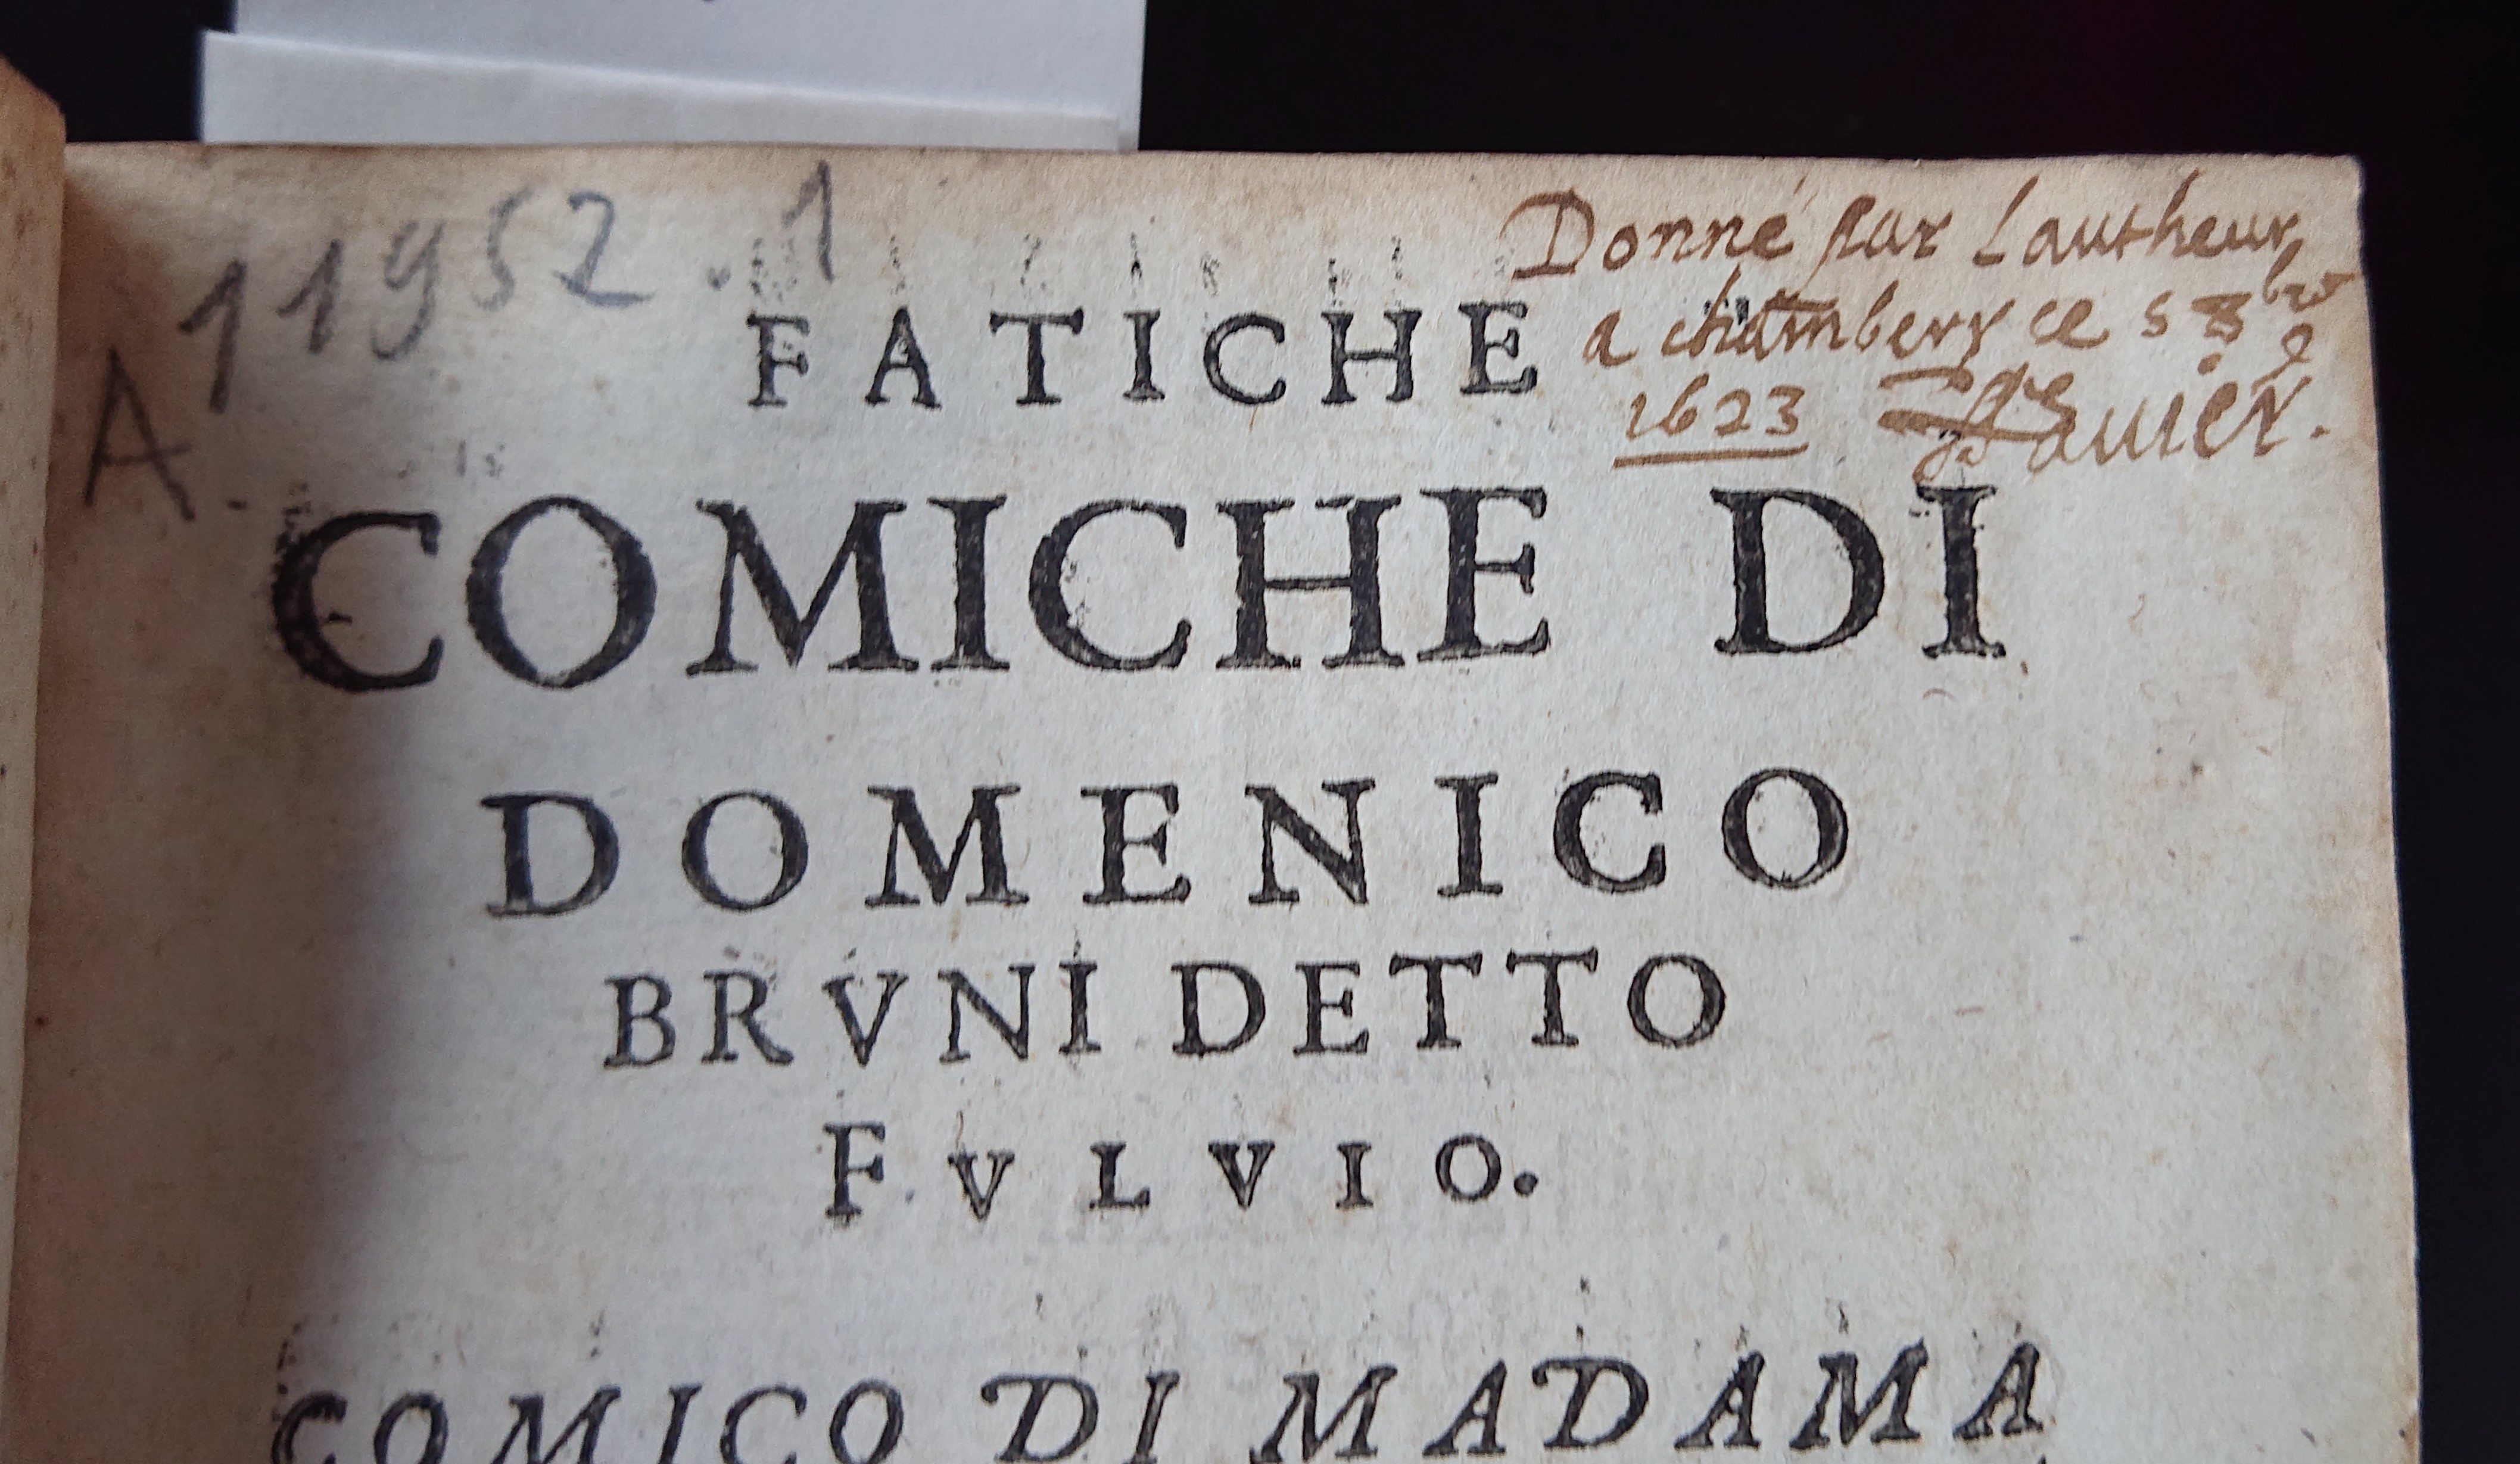 A 11952.1
Donné par Lautheur
a chambery ce 5 8bre
1623
FATICHE
COMICHE DI
DOMENICO
BRVNI DETTO
FVLVIO.
COMICO DI MADAMA